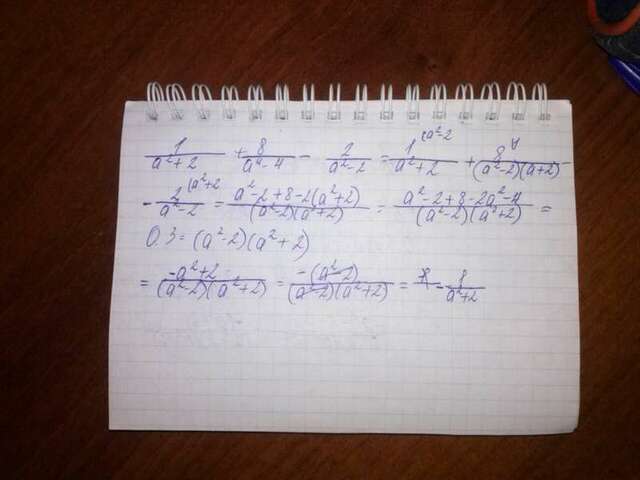 1/(a²+2) + 8/(a⁴-4) - 2/(a²-2) = 1^(a²-2/(a²+2) + 8/((a²-2)(a+2)) -
- 2^(a²+2/(a²-2) = (a²-2+8-2(a²+2))/((a²-2)(a²+2)) = (a²-2+8-2a²-4)/((a²-2)(a²+2)) =
О.З = (a²-2)(a²+2)
= (-a²+2)/((a²-2)(a²+2)) = (-(a²-2))/((a²-2)(a²+2)) = - 1/(a²+2)